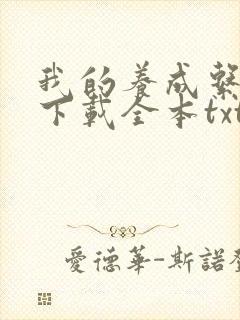 我的養成繫
下載全本txt
愛德華-斯諾登